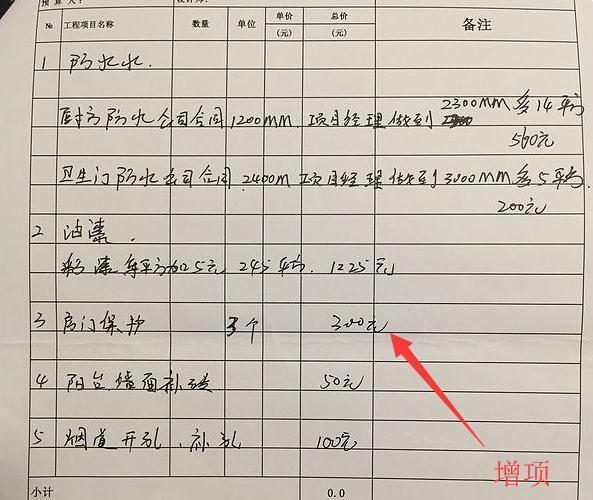 预算人: 设计师:
№ 工程项目名称 数量 单位 单价(元) 总价(元) 备注
1 防水水.
厨房防水公司合同1200MM. 项目经理做到 2300MM多14平方
560元
卫生门防水公司合同.2400M 项目经理做到3000MM多5平方.
200元
2 油漆.
彩漆每平方加25元 245平方. 1225元
3 房门保护 3个 300元
4 阳台.墙面补 50元
5 烟道开孔.补孔 100元
增项
小计 0.0